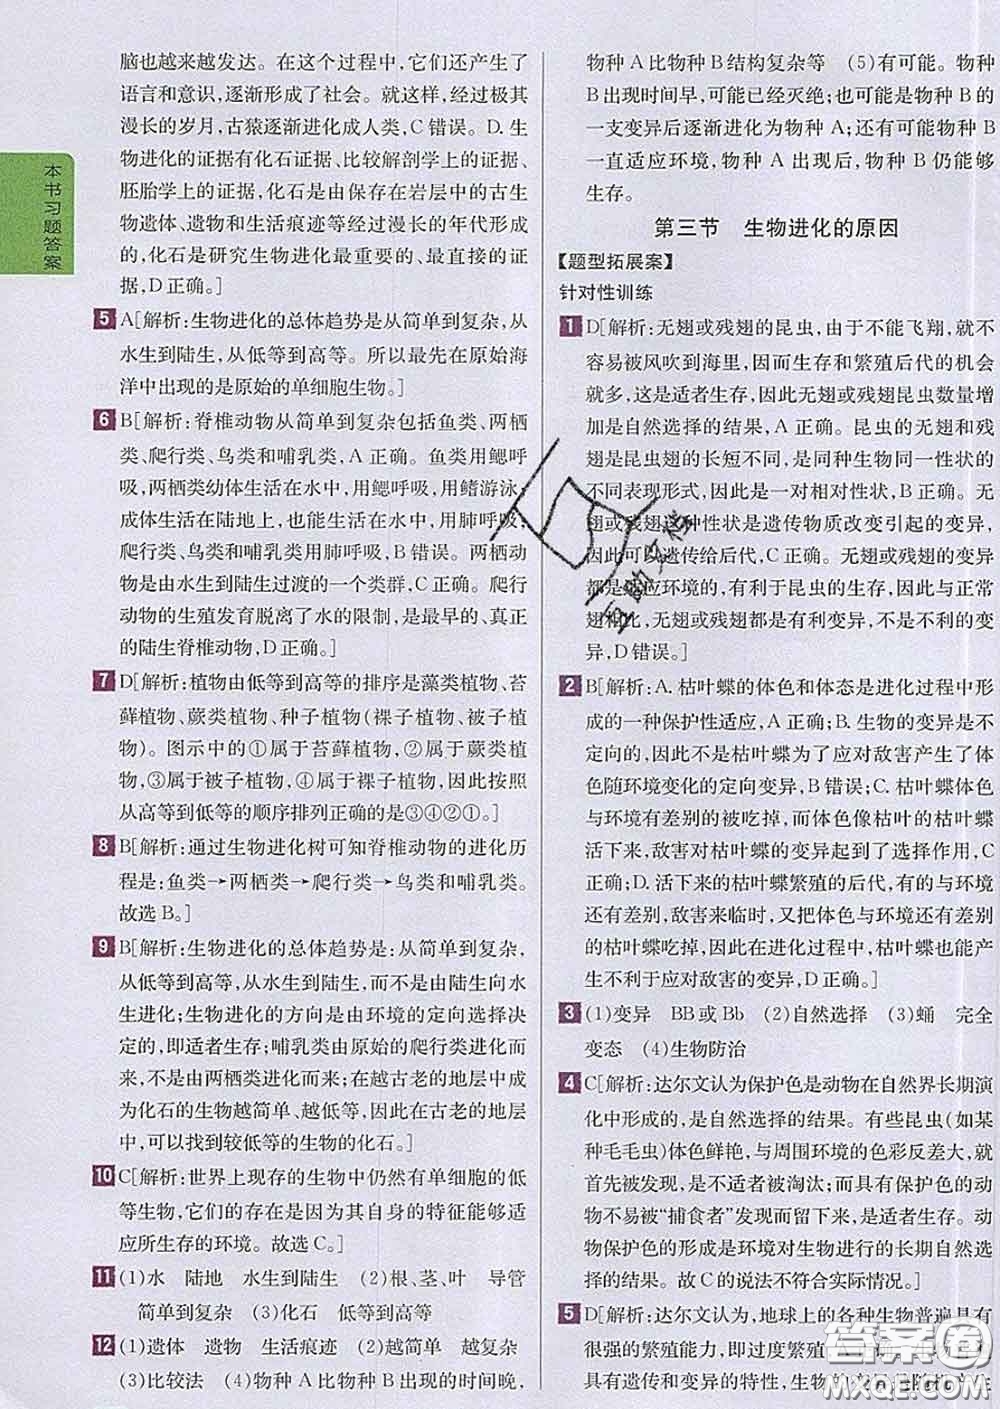 本书习题答案
脑也越来越发达。在这个过程中,它们还产生了
语言和意识,逐渐形成了社会。就这样,经过极其
漫长的岁月,古猿逐渐进化成人类,C错误。D.生
物进化的证据有化石证据、比较解剖学上的证据、
胚胎学上的证据,化石是由保存在岩层中的古生
物遗体、遗物和生活痕迹等经过漫长的年代形成
的,化石是研究生物进化最重要的、最直接的证
据,D正确。]
5 A[解析:生物进化的总体趋势是从简单到复杂,从
水生到陆生,从低等到高等。所以最先在原始海
洋中出现的是原始的单细胞生物。]
6 B[解析:脊椎动物从简单到复杂包括鱼类、两栖
类、爬行类、鸟类和哺乳类,A正确。鱼类用鳃呼
吸,两栖类幼体生活在水中,用鳃呼吸,用鳍游泳;
成体生活在陆地上,也能生活在水中,用肺呼吸;
爬行类、鸟类和哺乳类用肺呼吸,B错误。两栖动
物是由水生到陆生过渡的一个类群,C正确。爬行
动物的生殖发育脱离了水的限制,是最早的、真正
的陆生脊椎动物,D正确。]
7 D[解析:植物由低等到高等的排序是藻类植物、苔
藓植物、蕨类植物、种子植物(裸子植物、被子植
物)。图示中的①属于苔藓植物,②属于蕨类植
物,③属于被子植物,④属于裸子植物,因此按照
从高等到低等的顺序排列正确的是③④②①。]
8 B[解析:通过生物进化树可知脊椎动物的进化历
程是:鱼类→两栖类→爬行类→鸟类和哺乳类。
故选B。]
9 B[解析:生物进化的总体趋势是:从简单到复杂,
从低等到高等,从水生到陆生,而不是由陆生向水
生进化;生物进化的方向是由环境的定向选择决
定的,即适者生存;哺乳类由原始的爬行类进化而
来,不是由两栖类进化而来;在越古老的地层中成
为化石的生物越简单、越低等,因此在古老的地层
中,可以找到较低等的生物的化石。]
10 C[解析:世界上现存的生物中仍然有单细胞的低
等生物,它们的存在是因为其自身的特征能够适
应所生存的环境。故选C。]
11 (1)水 陆地 水生到陆生 (2)根、茎、叶 导管
简单到复杂 (3)化石 低等到高等
12 (1)遗体 遗物 生活痕迹 (2)越简单 越复杂
(3)比较法 (4)物种A比物种B出现的时间晚,
物种A比物种B结构复杂等 (5)有可能。物种
B出现时间早,可能已经灭绝;也可能是物种B的
一支变异后逐渐进化为物种A;还有可能物种B
一直适应环境,物种A出现后,物种B仍能够
生存。
第三节 生物进化的原因
【题型拓展案】
针对性训练
1 D[解析:无翅或残翅的昆虫,由于不能飞翔,就不
容易被风吹到海里,因而生存和繁殖后代的机会
就多,这是适者生存,因此无翅或残翅昆虫数量增
加是自然选择的结果,A正确。昆虫的无翅和残
翅是昆虫翅的长短不同,是同种生物同一性状的
不同表现形式,因此是一对相对性状,B正确。无
翅或残翅这种性状是遗传物质改变引起的变异,
因此可以遗传给后代,C正确。无翅或残翅的变异
都是适应环境的,有利于昆虫的生存,因此与正常
翅相比,无翅或残翅都是有利变异,不是不利的变
异,D错误。]
2 B[解析:A.枯叶蝶的体色和体态是进化过程中形
成的一种保护性适应,A正确;B.生物的变异是不
定向的,因此不是枯叶蝶为了应对敌害产生了体
色随环境变化的定向变异,B错误;C.枯叶蝶体色
与环境有差别的被吃掉,而体色像枯叶的枯叶蝶
活下来,敌害对枯叶蝶的变异起到了选择作用,C
正确;D.活下来的枯叶蝶繁殖的后代,有的与环境
还有差别,敌害来临时,又把体色与环境还有差别
的枯叶蝶吃掉,因此在进化过程中,枯叶蝶也能产
生不利于应对敌害的变异,D正确。]
3 (1)变异 BB或Bb (2)自然选择 (3)蛹 完全
变态 (4)生物防治
4 C[解析:达尔文认为保护色是动物在自然界长期演
化中形成的,是自然选择的结果。有些昆虫(如某
种毛毛虫)体色鲜艳,与周围环境的色彩反差大,就
首先被发现,是不适者被淘汰;而具有保护色的动
物不易被“捕食者”发现而留下来,是适者生存。动
物保护色的形成是环境对生物进行的长期自然选
择的结果。故C的说法不符合实际情况。]
5 D[解析:达尔文认为,地球上的各种生物普遍具有
很强的繁殖能力,即过度繁殖
具有遗传和变异的特性,生物
互助文档
答案圈
MXQE.COM